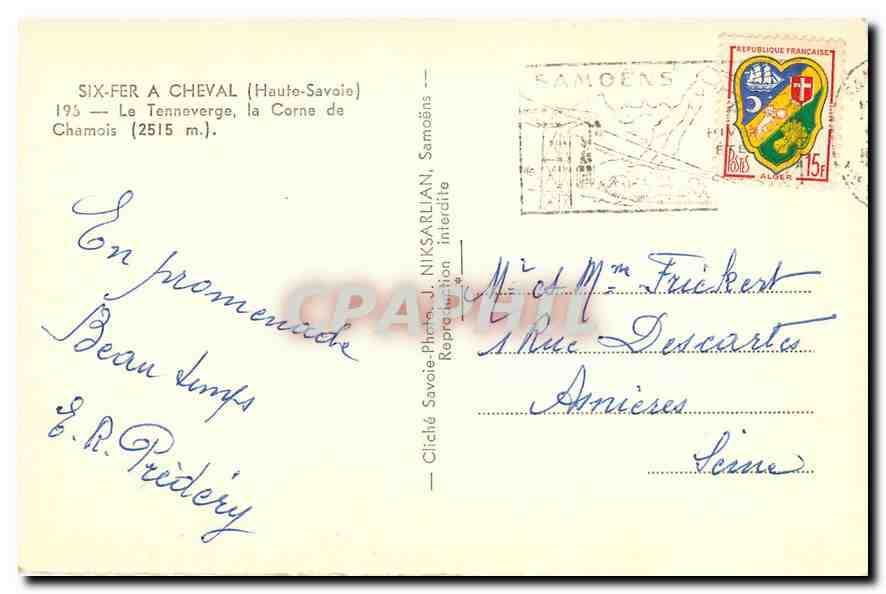 SIX-FER A CHEVAL (Haute-Savoie)
195 — Le Tenneverge, la Corne de
Chamois (2515 m.).
En promenade
Beau temps
E. R. Prèdéry
— Cliché Savoie-Photo, J. NIKSARLIAN, Samoëns —
Reproduction interdite
SAMOËNS
REPUBLIQUE FRANÇAISE
POSTES
ALGER
15F
Mr et Mme Frickert
1 Rue Descartes
Asnières
Seine
CPAPHIL